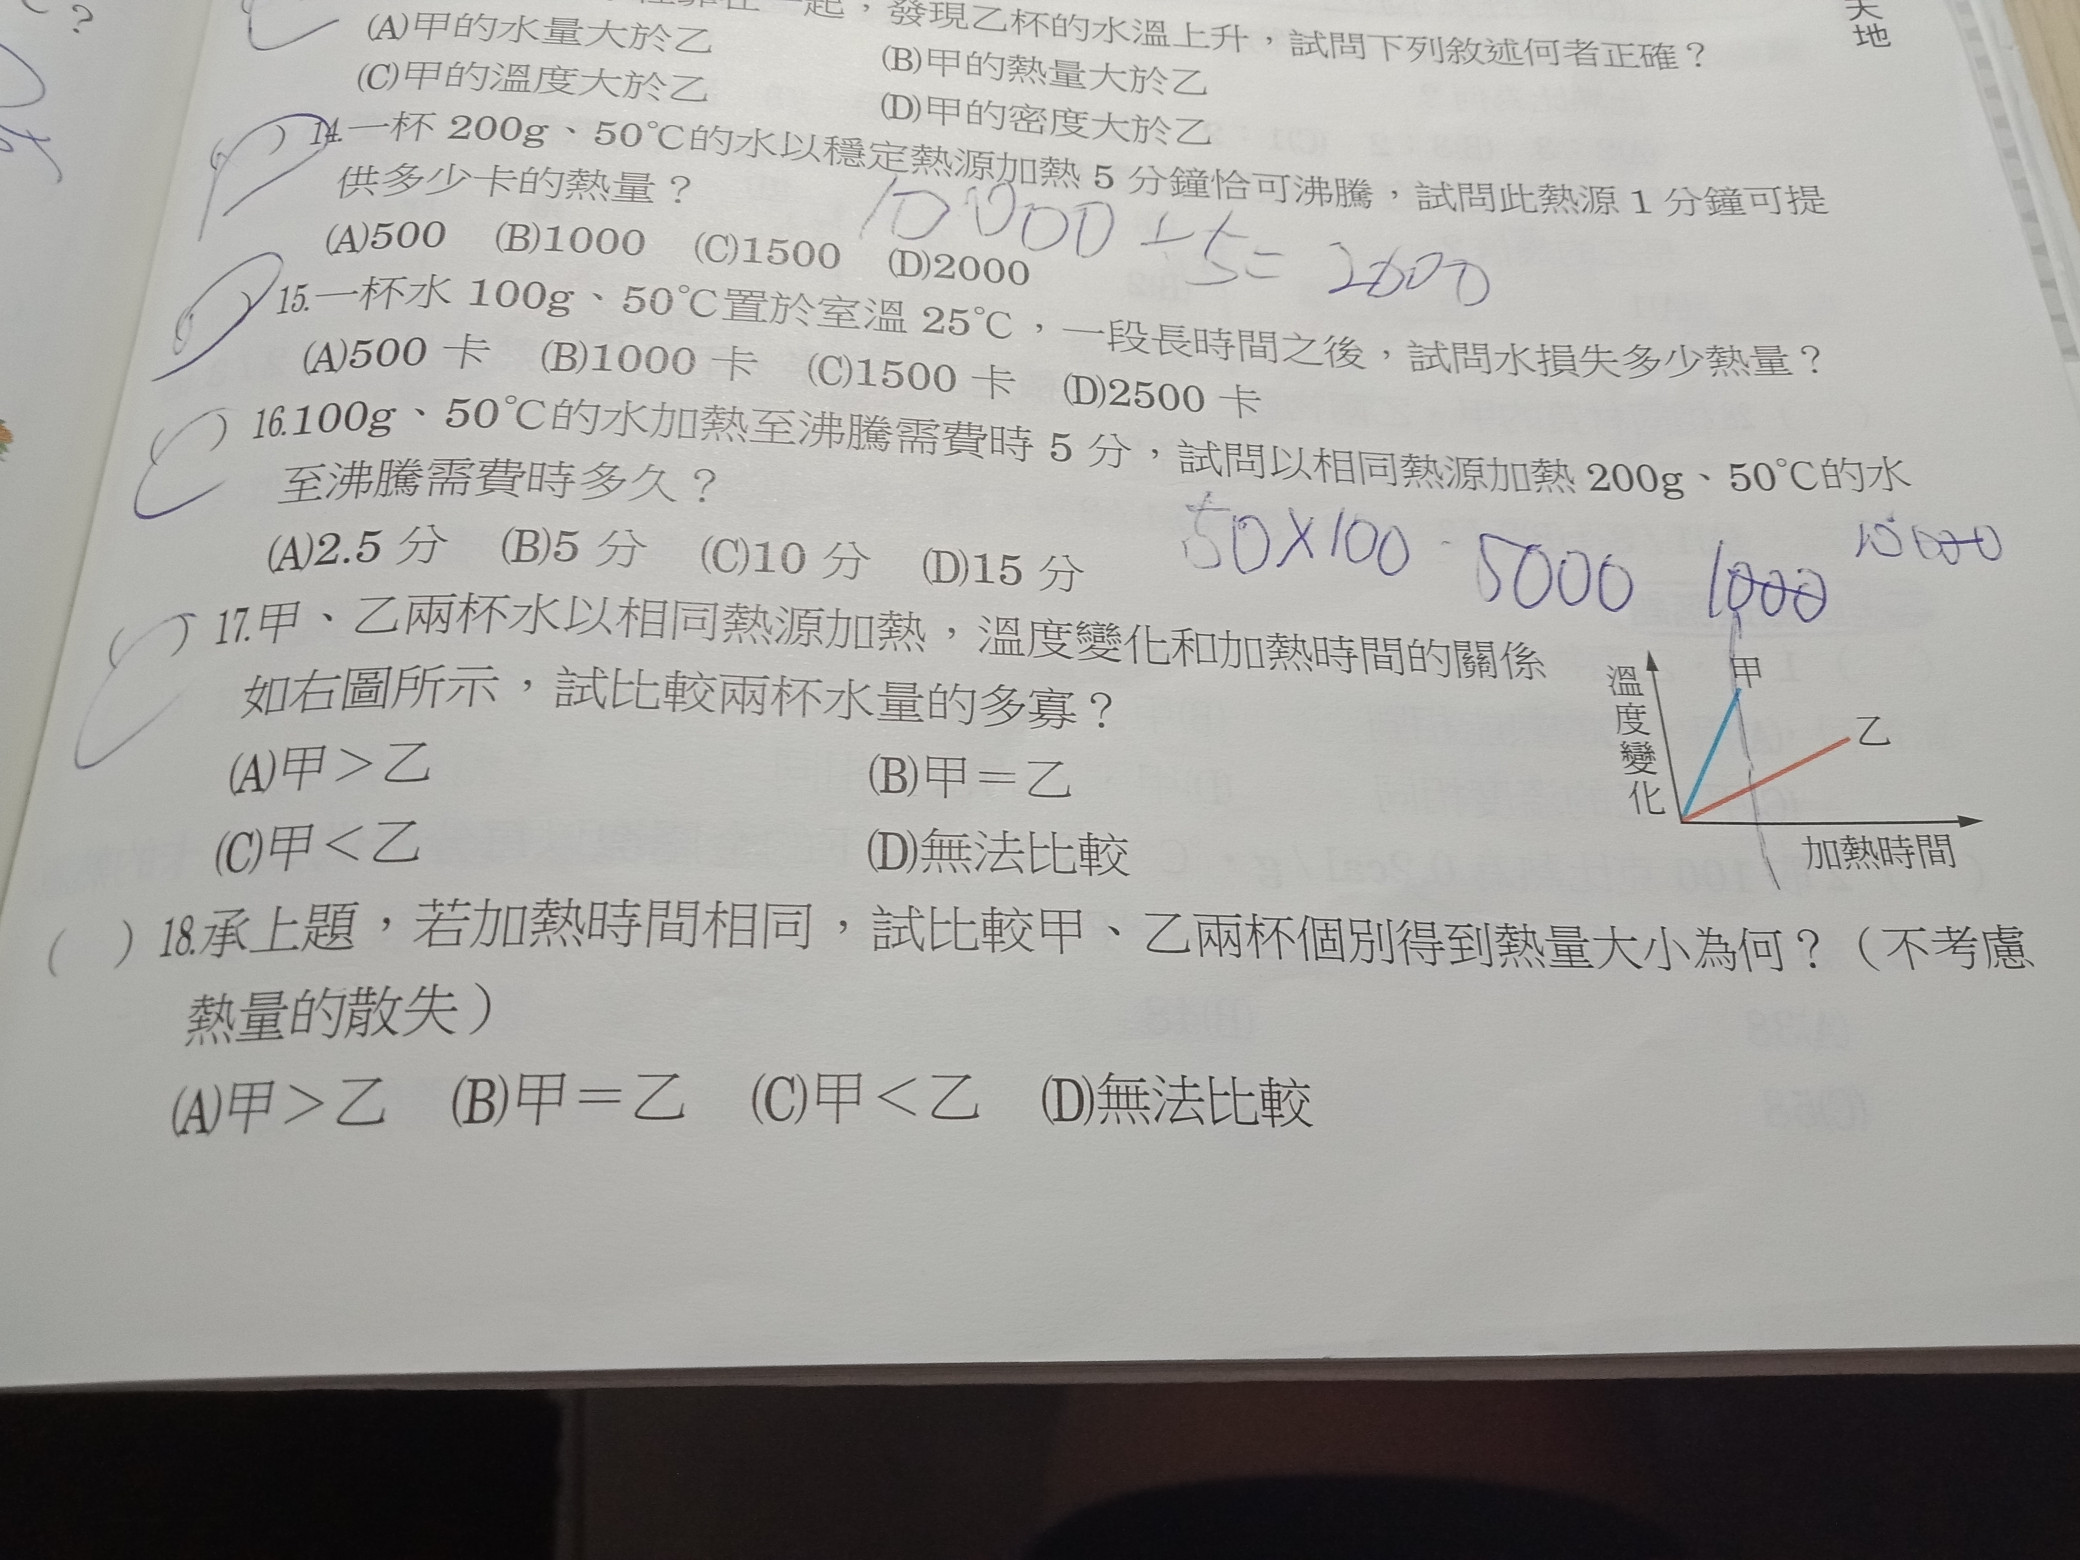 ?
天地
起，發現乙杯的水溫上升，試問下列敘述何者正確？
(A)甲的水量大於乙 (B)甲的熱量大於乙
(C)甲的溫度大於乙 (D)甲的密度大於乙
D
( ) 14.一杯 200g、50℃的水以穩定熱源加熱 5 分鐘恰可沸騰，試問此熱源 1 分鐘可提
供多少卡的熱量？
10000÷5=2000
(A)500 (B)1000 (C)1500 (D)2000
D
( ) 15.一杯水 100g、50℃置於室溫 25℃，一段長時間之後，試問水損失多少熱量？
(A)500 卡 (B)1000 卡 (C)1500 卡 (D)2500 卡
C
( ) 16.100g、50℃的水加熱至沸騰需費時 5 分，試問以相同熱源加熱 200g、50℃的水
至沸騰需費時多久？
(A)2.5 分 (B)5 分 (C)10 分 (D)15 分
50×100 5000 1000 10000
C
( ) 17.甲、乙兩杯水以相同熱源加熱，溫度變化和加熱時間的關係
如右圖所示，試比較兩杯水量的多寡？
(A)甲＞乙 (B)甲＝乙
(C)甲＜乙 (D)無法比較
溫度變化
甲
乙
加熱時間
( ) 18.承上題，若加熱時間相同，試比較甲、乙兩杯個別得到熱量大小為何？（不考慮
熱量的散失）
(A)甲＞乙 (B)甲＝乙 (C)甲＜乙 (D)無法比較